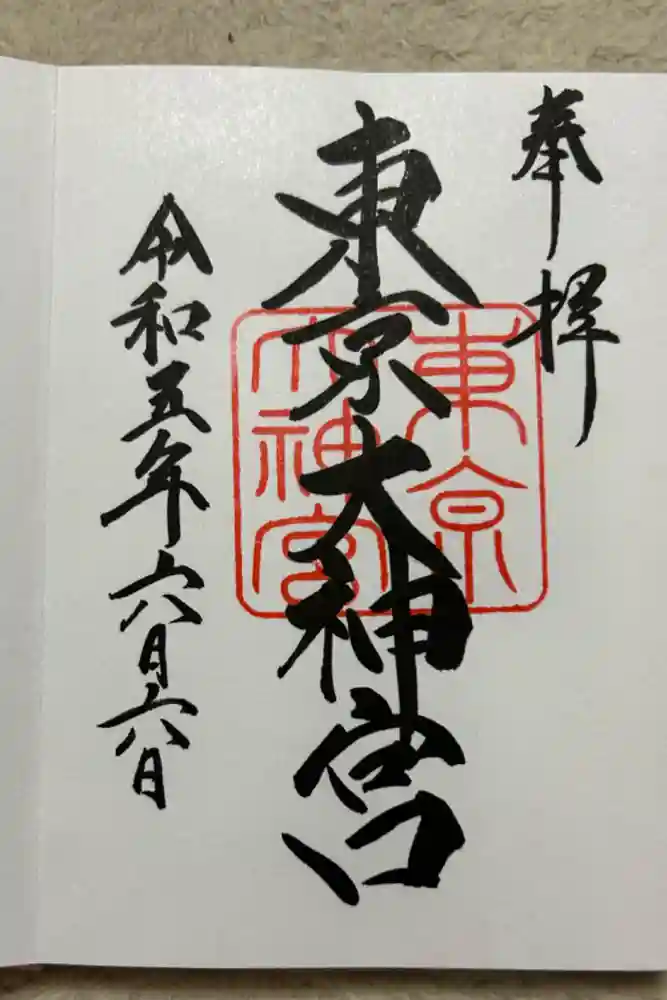 奉拝
東京大神宮
東京
大神宮
令和五年六月六日